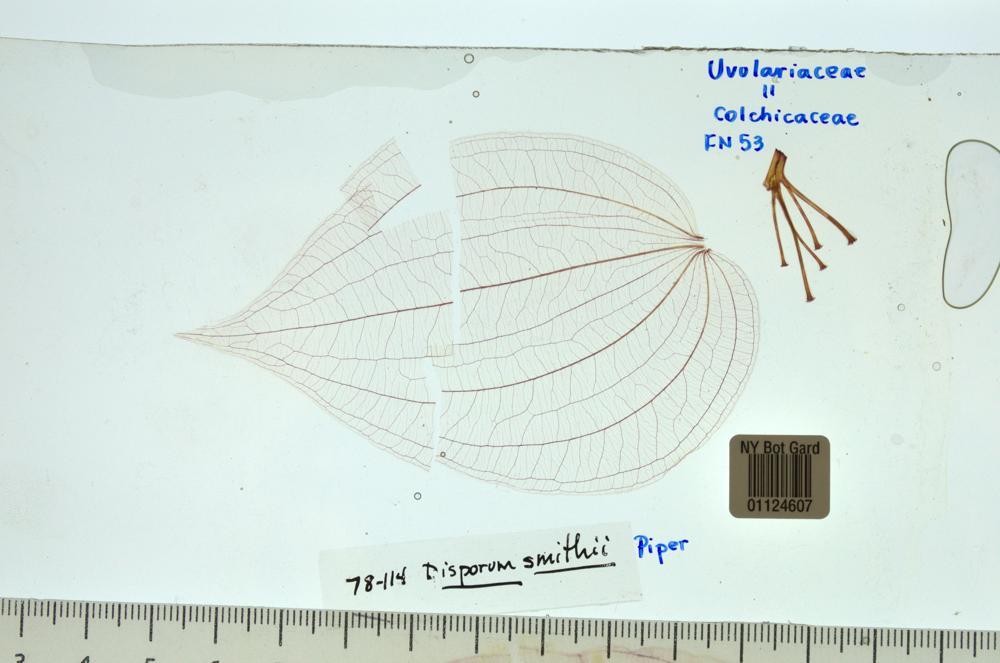 Uvulariaceae
"
Colchicaceae
FN 53
NY Bot Gard
01124607
78-114 Disporum smithii Piper
3 4 5 6